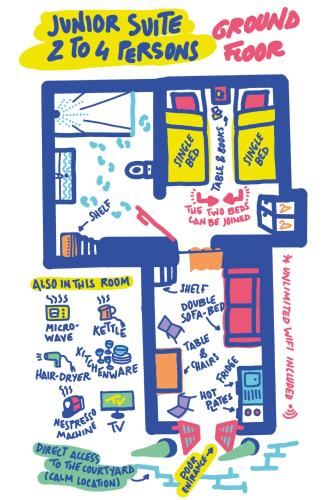 JUNIOR SUITE
2 TO 4 PERSONS
GROUND
FLOOR
SINGLE
BED
TABLE & BOOKS
SINGLE
BED
THE TWO BEDS
CAN BE JOINED
SHELF
ALSO IN THIS ROOM
MICRO-
WAVE
KETTLE
HAIR-DRYER
KITCHENWARE
NESPRESSO
MACHINE
TV
TV
SHELF
DOUBLE
SOFA-BED
TABLE
&
CHAIRS
FRIDGE
HOT
PLATES
* UNLIMITED WIFI INCLUDED
DIRECT ACCESS
TO THE COURTYARD
(CALM LOCATION)
DOOR
ENTRANCE